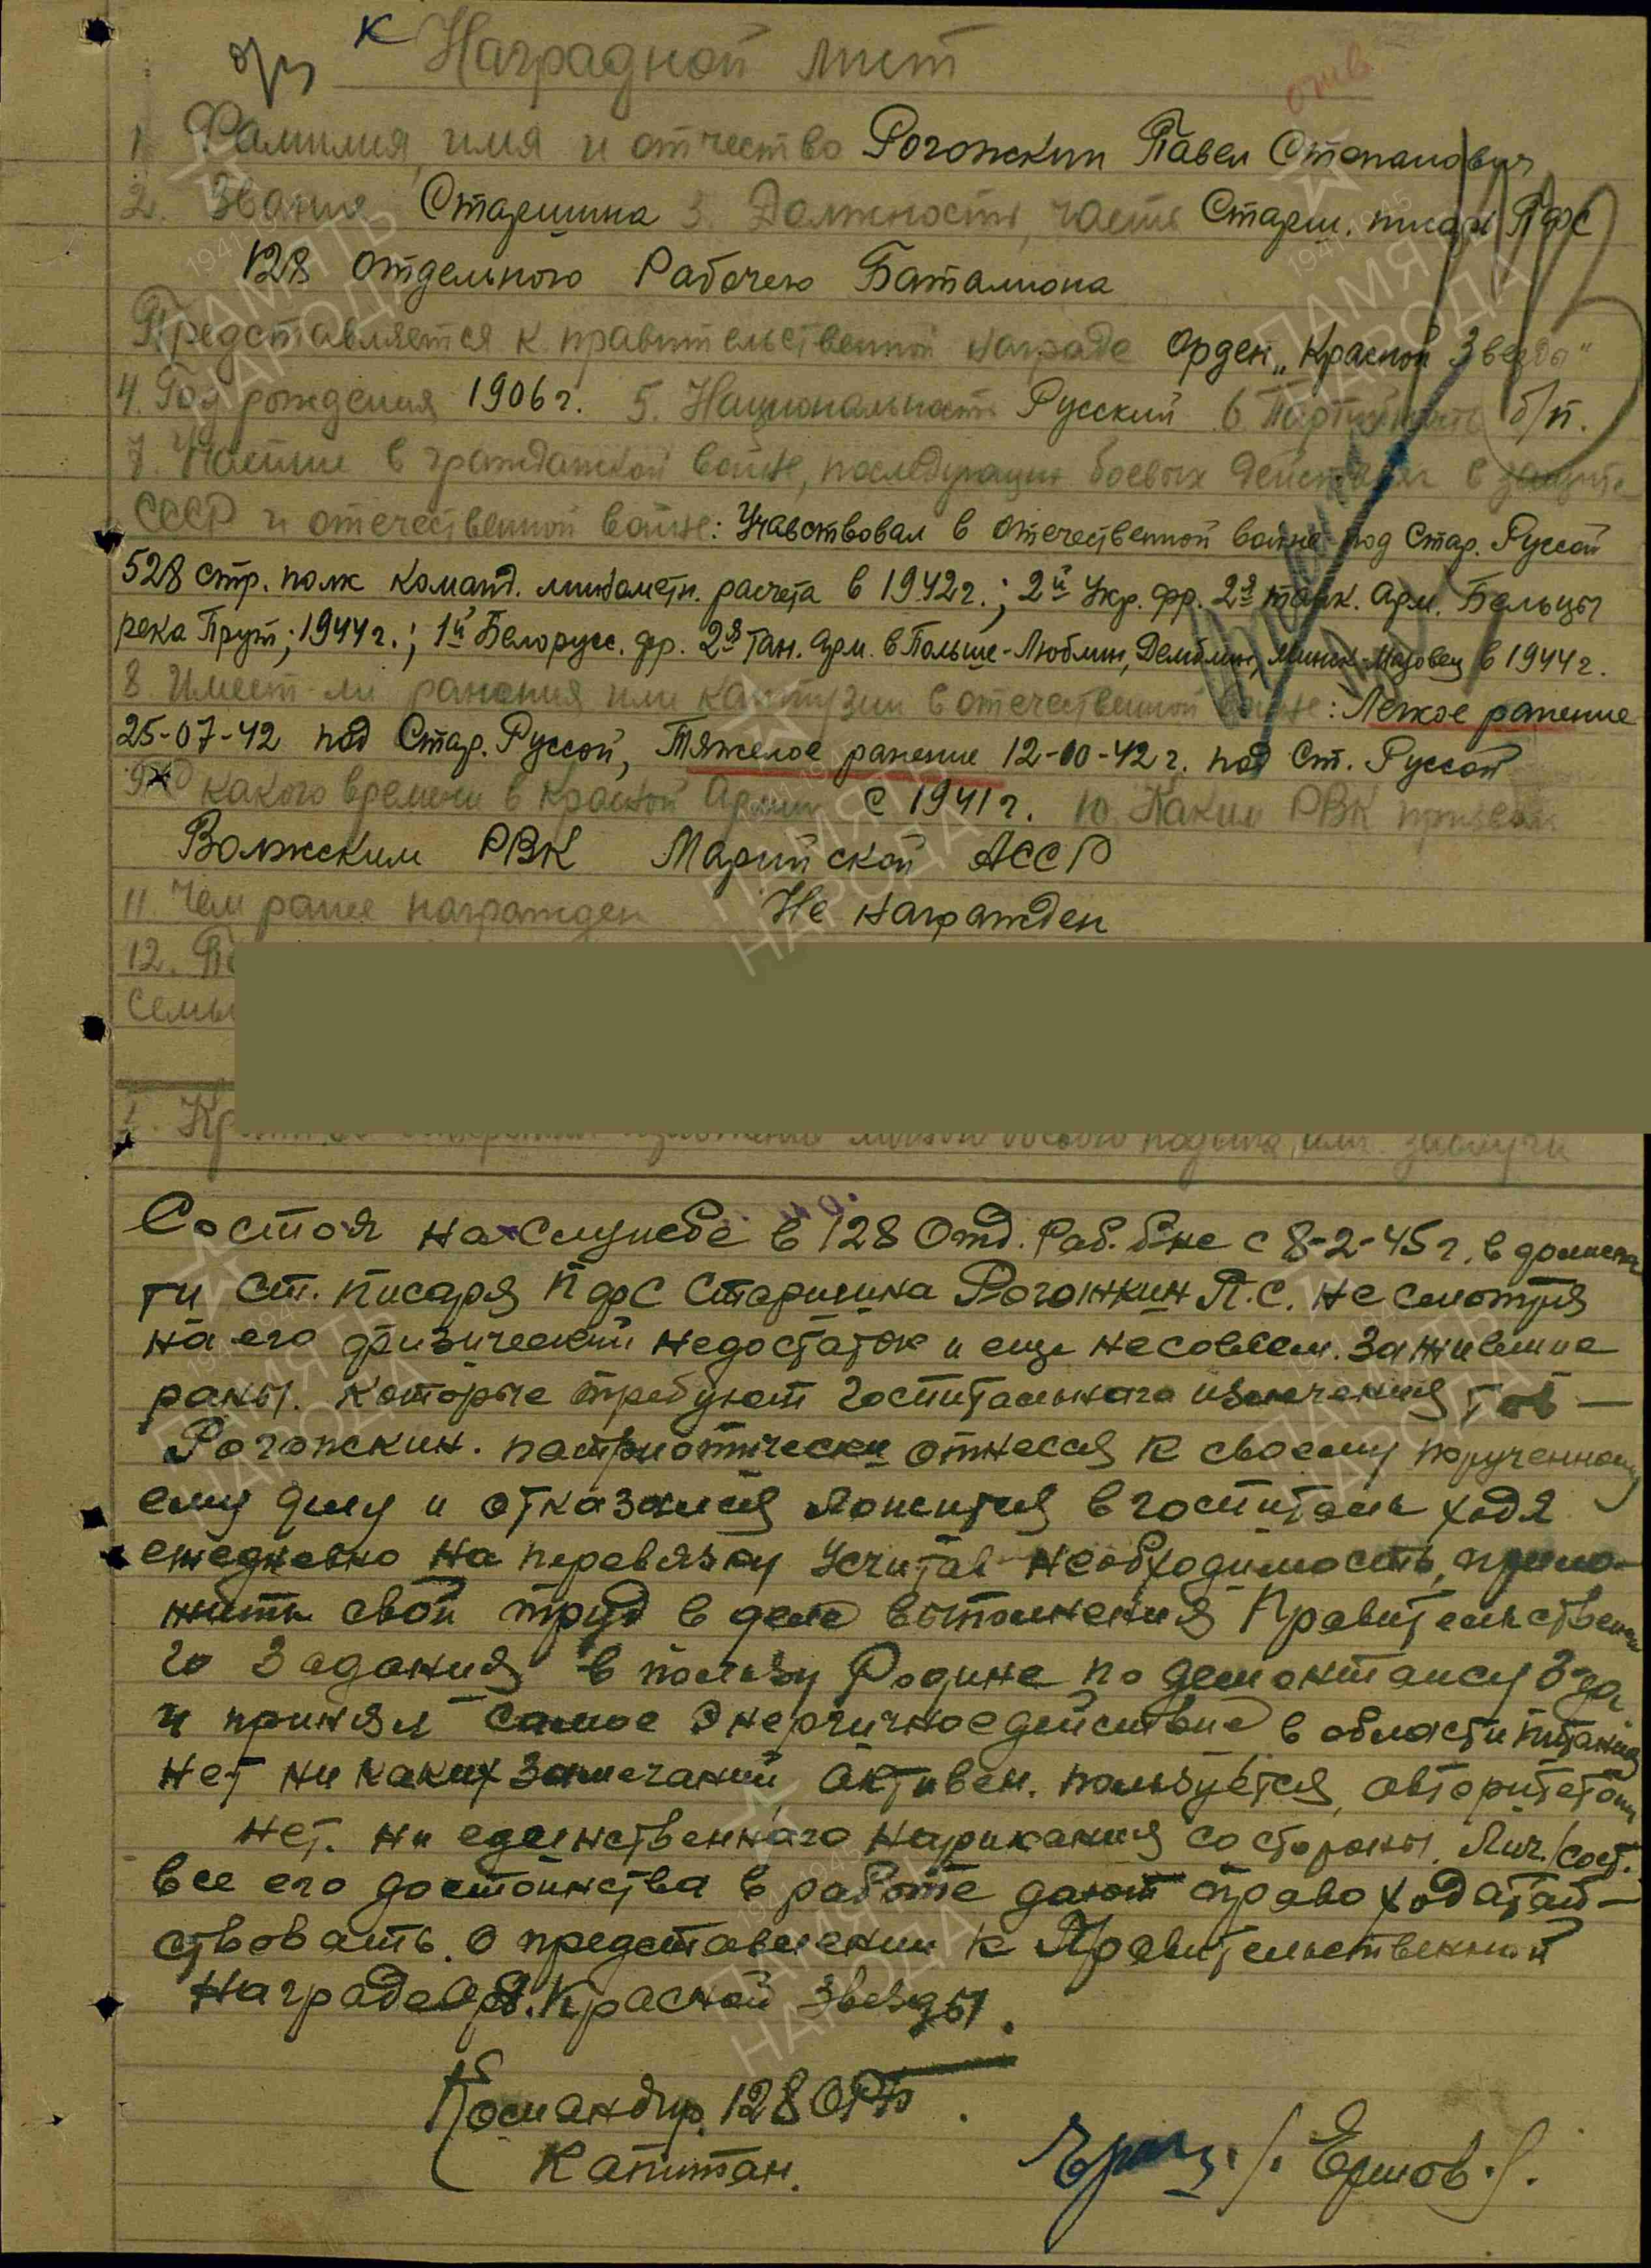 К Наградной лист
1 Фамилия, имя и отчество Рогожкин Павел Степанович
2. Звание Старшина 3. Должность, часть Старш. писарь ПФС
128 отдельного Рабочего Баталиона
Представляется к правительственной награде орден „Красной Звезды"
4. Год рождения 1906 г. 5. Национальность Русский 6 Партийность б/п.
7. Участие в гражданской войне, последующих боевых действиях в защите
СССР и отечественной войне: Учавствовал в отечественной войне под Стар. Руссой
528 стр. полк команд. минометн. расчета в 1942 г.; 2й Укр. фр. 2я танк. Арм. Бельцы
река Прут; 1944 г.; 1й Белорусс. фр. 2я тан. арм. в Польше - Люблин, Демблин, Минск-Мазовец в 1944 г.
8. Имеет ли ранения или контузии в отечественной войне: Легкое ранение
25-07-42 под Стар. Руссой, Тяжелое ранение 12-10-42 г. под Ст. Руссой
9. С какого времени в Красной Армии с 1941 г. 10. Каким РВК призван
Волжским РВК Марийской АССР
11 Чем ранее награжден Не награжден
12.
семьи
1. изложение личного боевого подвига, или заслуги
Состоя на службе в 128 Отд. Раб. б-не с 8-2-45 г. в должнос
ти ст. писаря ПФС Старшина Рогожкин П.С. не смотря
на его физический недостаток и еще несовсем зажившие
раны. которые требуют госпитального излечения тов —
Рогожкин. патриотически отнесся к своему порученному
ему делу и отказался ложится в госпиталь ходя
ежедневно на перевязку Усчитав необходимость, прило-
жить свой труд в деле выполнения Правительственно
го Задания в пользу Родине по демонтажу з-да
и принял самое Энергичное действие в области питания
нет ни каких замечаний, активен. пользуется, авторитетом
нет. ни единственного нарикания со стороны. Лич/сост.
все его достоинства в работе дают право ходатай—
ствовать. о представлении к Правительственной
Награде Орд. Красной Звезды.
Командир. 128 ОРБ.
Капитан. /. Ершов./.
ПАМЯТЬ НАРОДА
1941-1945